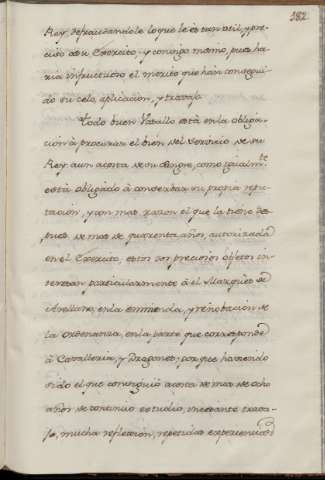 182
Rey, defraudandole lo que le es tan util, y pre-
ciso à su Exercito, y consigo mismo, pues ha-
ria infructuoso el merito que han consegui-
do su celo, aplicacion, y travajo.
Todo buen Vasallo està en la obliga-
cion à procurar el bien del Servicio de su
Rey aun acosta de su Sangre, como igualmte.
està obligado à conservar su propia repu-
tacion, y con mas razon el que la tiene des-
pues de mas de quarenta años, autorizada
en el Exercito, estos dos preciosos objetos in-
teresan particularmente à el Marques de
Avellano, en la enmienda, y renobacion de
la Ordenanza, en la parte que corresponde
à Cavalleria, y Dragones; porque haviendo
sido el que consiguiò acosta de mas de ocho
años de continuo estudio, incesante trava-
jo, mucha reflexion, repetidas experiencias